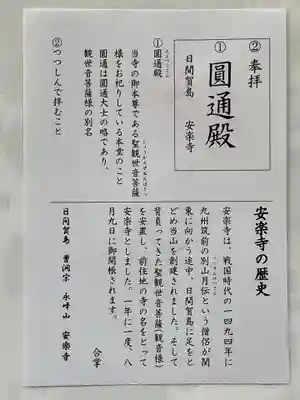 ② 奉拝
① 圓通殿
日間賀島 安楽寺
①圓通殿
えんつうでん
当寺の御本尊である聖観世音菩薩
しょうかんぜおんぼさつ
様をお祀りしている本堂のこと
圓通は圓通大士の略であり、
観世音菩薩様の別名
②つつしんで拝むこと
安楽寺の歴史
安楽寺は、戦国時代の一四九四年に
九州筑前の別山月伝という僧侶が関
べつざんげつでん
東に向かう途中、日間賀島に足をと
どめ当山を創建されました。そして
背負ってきた聖観世音菩薩(観音様)
を安置し、前住地の寺の名をとって
安楽寺としました。一年に一度、八
月九日に御開帳されます。
合掌
日間賀島 曹洞宗 永峰山 安楽寺